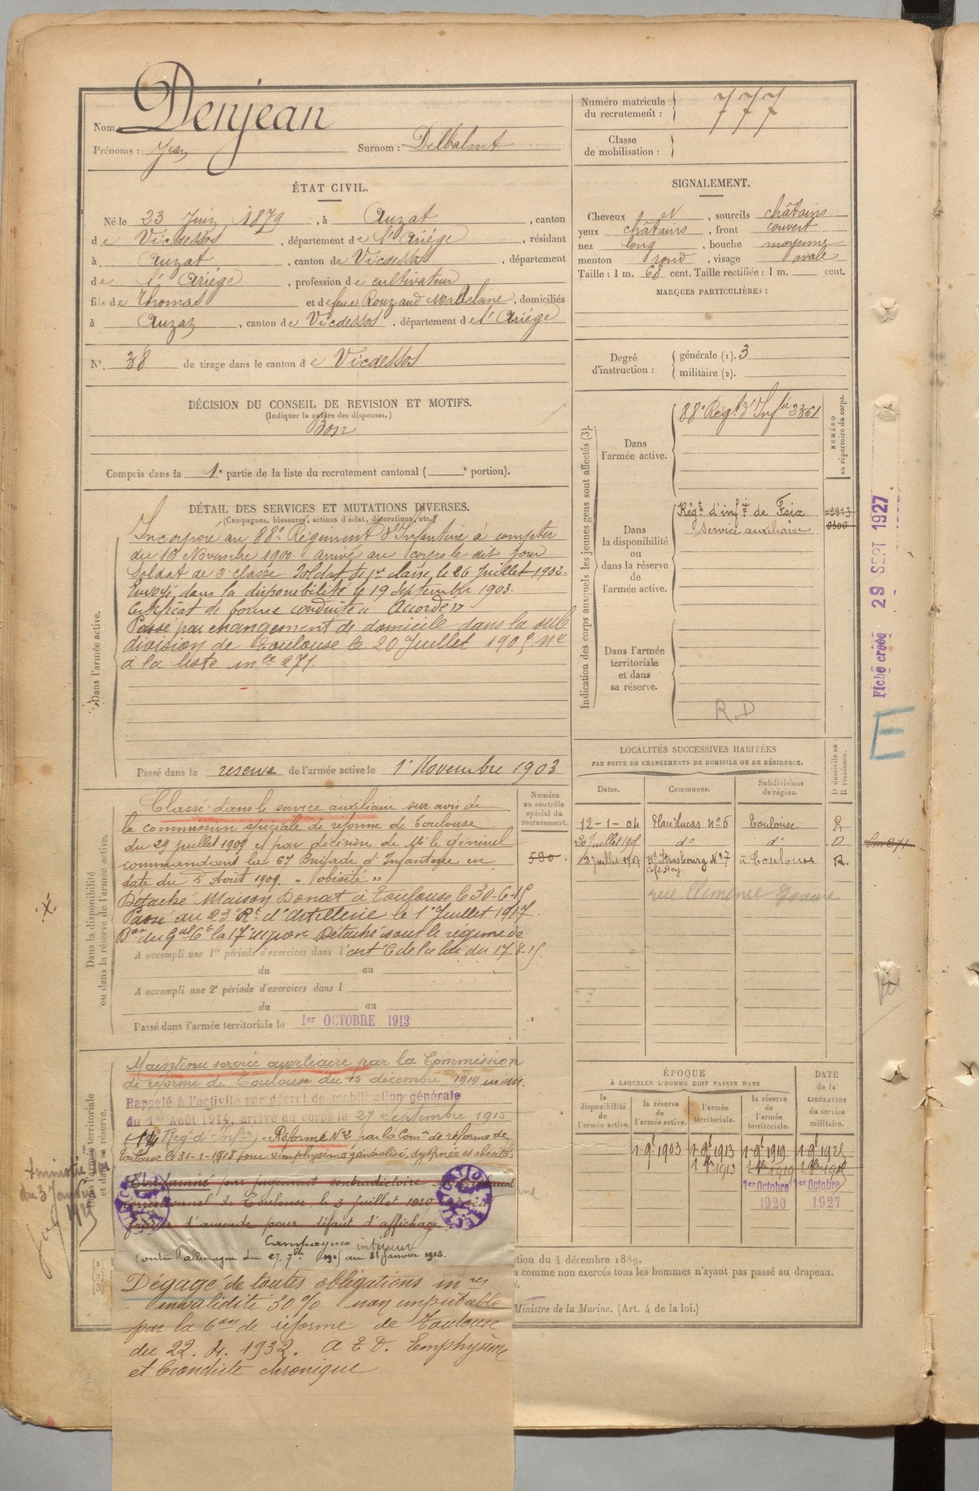 Nom Denjean
Prénoms : Jean Surnom : Delbalent
Numéro matricule du recrutement : 777
Classe de mobilisation :
ÉTAT CIVIL.
Né le 23 Juin 1879, à Auzat, canton
de Vicdessos, département de l'Ariège, résidant
à Auzat, canton de Vicdessos, département
de l'Ariège, profession de cultivateur
fils de Thomas et de feue Rouzaud domiciliés
à Auzat, canton de Vicdessos, département de l'Ariège
N°. 38 de tirage dans le canton de Vicdessos
SIGNALEMENT.
Cheveux N, sourcils châtains
yeux châtains, front couvert
nez long, bouche moyenne
menton rond, visage ovale
Taille : 1 m. 68 cent. Taille rectifiée : 1 m. cent.
MARQUES PARTICULIÈRES :
Degré d'instruction : générale (1). 3
militaire (2).
DÉCISION DU CONSEIL DE REVISION ET MOTIFS.
(Indiquer la nature des dispenses.)
Bon
Compris dans la 1e partie de la liste du recrutement cantonal ( e portion).
DÉTAIL DES SERVICES ET MUTATIONS DIVERSES.
(Campagnes, blessures, actions d'éclat, décorations, etc.)
Dans l'armée active.
Incorporé au 88e Régiment d'Infanterie à compter
du 16 Novembre 1900 arrivé au corps le dit jour
Soldat de 2e classe Soldat de 1re classe le 26 Juillet 1902.
Envoyé dans la disponibilité le 19 septembre 1903.
Certificat de bonne conduite " Accordé "
Passé par changement de domicile dans la sub
division de Toulouse le 20 Juillet 1905 
à la liste 271
Passé dans la réserve de l'armée active le 1er Novembre 1903
Indication des corps auxquels les jeunes gens sont affectés (3).
Dans l'armée active.
88e Régt d'Infie 2361
NUMÉRO au répertoire du corps.
Dans la disponibilité ou dans la réserve de l'armée active.
Régt d'infie de Foix
Service auxiliaire
Dans l'armée territoriale et dans sa réserve.
R.D
Fiche créée 29 SEPT 1927
E
Dans la disponibilité ou dans la réserve de l'armée active.
Numéro au contrôle spécial du recrutement.
590
Classé dans le service auxiliaire sur avis de
la commission spéciale de réforme de Toulouse
du 29 juillet 1909 et par décision de Mr le Général
commandant la 67e Brigade d'Infanterie en
date du 5 Août 1909. " obésité "
Détaché Maison Donat à Toulouse le 30-6-15
Passé au 23e Rt d'artillerie le 1er Juillet 1917
Don du Gal Ct la 17e région Détaché sous le régime de
A accompli une 1re période d'exercices dans l'art 6 de la loi du 17-8-15
du au
A accompli une 2e période d'exercices dans l
du au
Passé dans l'armée territoriale le 1er OCTOBRE 1913
LOCALITÉS SUCCESSIVES HABITÉES
PAR SUITE DE CHANGEMENTS DE DOMICILE OU DE RÉSIDENCE.
D domicile ou R résidence.
Dates. Communes. Subdivisions de région.
12-1-04 Place Lucas n°6 Toulouse R
20 Juillet 1905 do do D
Bd Strasbourg N°7 à Toulouse R.
Maintenu service auxiliaire par la Commission
de réforme de Toulouse du 15 décembre 1914
Rappelé à l'activité par décret de mobilisation générale
du 1er Août 1914, arrivé au corps le 27 septembre 1915
Réformé N°2 par la Comon de réforme de
Toulouse le 31-1-1918 pour emphysème généralisé, dyspnée et obésité
Condamné par jugement contradictoire
correctionnel de Toulouse le 3 juillet 1920
francs d'amende pour défaut d'affichage
Campagnes intérieur
contre l'allemagne du 27 7bre 1915 au 31 janvier 1918.
Dégagé de toutes obligations
invalidité 30 % non imputable
par la Con de réforme de Toulouse
du 22. 4. 1932. Emphysème
et bronchite chronique
Amnistié
ÉPOQUE
À LAQUELLE L'HOMME DOIT PASSER DANS
la disponibilité de l'armée active.
la réserve de l'armée active.
l'armée territoriale.
la réserve de l'armée territoriale.
DATE de la LIBÉRATION du service militaire.
1 9bre 1903 1 9bre 1913 1 9bre 1919 1 9bre 1925
1er Octobre 1920
1er Octobre 1927
du 4 décembre 1889.
comme non exercés tous les hommes n'ayant pas passé au drapeau.
Ministre de la Marine. (Art. 4 de la loi.)